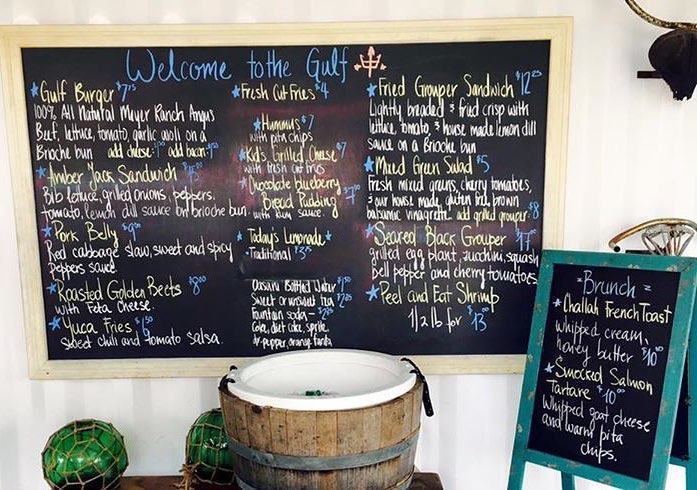 Welcome to the Gulf
Gulf Burger
100% All Natural Meyer Ranch Angus
Beef, lettuce, tomato, garlic aioli on a
Brioche bun add cheese add bacon
Amber Jack Sandwich
Bib lettuce, grilled onions, peppers,
tomato, lemon dill sauce on brioche bun.
Pork Belly
Red cabbage slaw, sweet and spicy
peppers sauce.
Roasted Golden Beets $8.00
with Feta Cheese.
Yuca Fries
sweet chili and tomato salsa.
Fresh Cut Fries $4
Hummus $7
with pita chips
Kid's Grilled Cheese $7
with fresh cut fries
Chocolate blueberry
Bread Pudding
with rum sauce.
Today's Lemonade
Traditional
Dasani Bottled Water
Sweet or unsweet tea
Fountain soda
Coke, diet coke, sprite,
dr. pepper, orange fanta
Fried Grouper Sandwich
Lightly breaded & fried crisp with
lettuce, tomato, & house made lemon dill
sauce on a Brioche bun
Mixed Green Salad $5
Fresh mixed greens, cherry tomatoes,
& our house made, gluten free, brown
balsamic vinagrette add grilled grouper $8
Seared Black Grouper $17
grilled egg plant, zucchini, squash
Bell pepper and cherry tomatoes
Peel and Eat Shrimp
1/2 lb for $13
Brunch
Challah French Toast
whipped cream,
honey butter $10
Smocked Salmon
Tartare $10
Whipped goat cheese
and warm pita
chips.